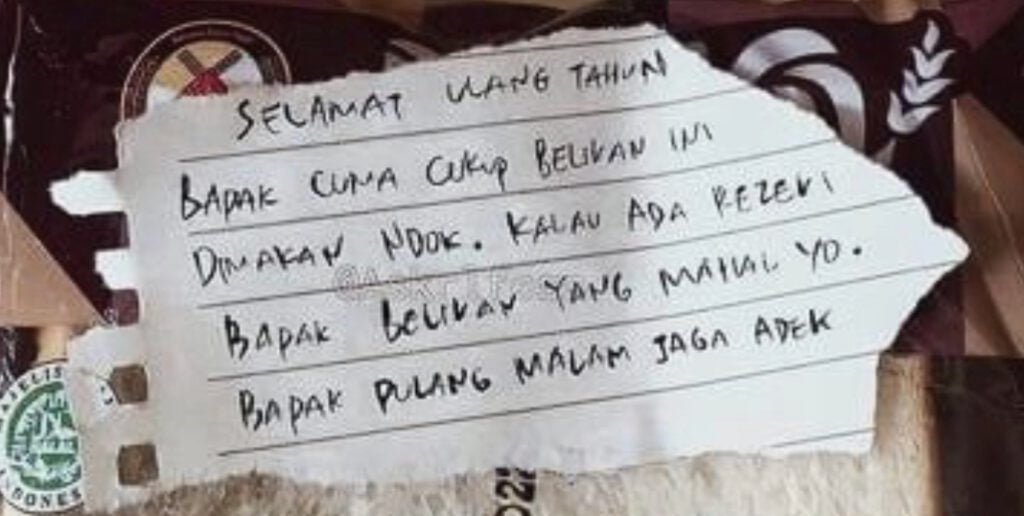 SELAMAT ULANG TAHUN
BAPAK CUMA CUKUP BELIKAN INI
DIMAKAN NDOK. KALAU ADA REZEKI
BAPAK BELIKAN YANG MAHAL YO.
BAPAK PULANG MALAM JAGA ADEK